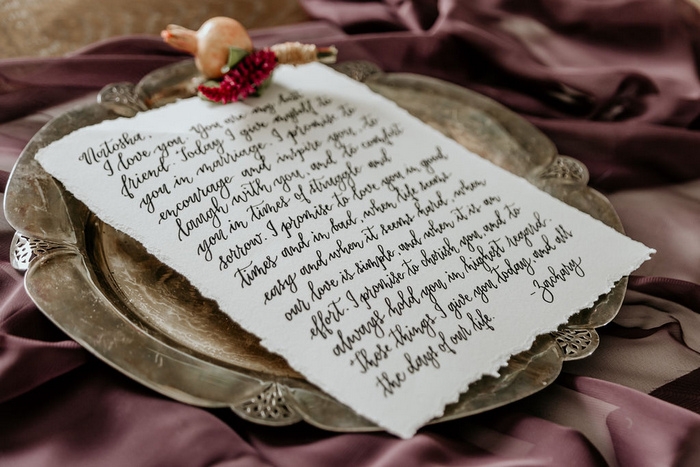 Natasha,
I love you. You are my best
friend. Today I give myself to
you in marriage. I promise to
encourage and inspire you, to
laugh with you, and to comfort
you in times of struggle and
sorrow. I promise to love you in good
times and in bad, when life seems
easy and when it seems hard, when
our love is simple, and when it is an
effort. I promise to cherish you and to
always hold you in highest regard.
These things I give you today and all
the days of our life.
-Zachary